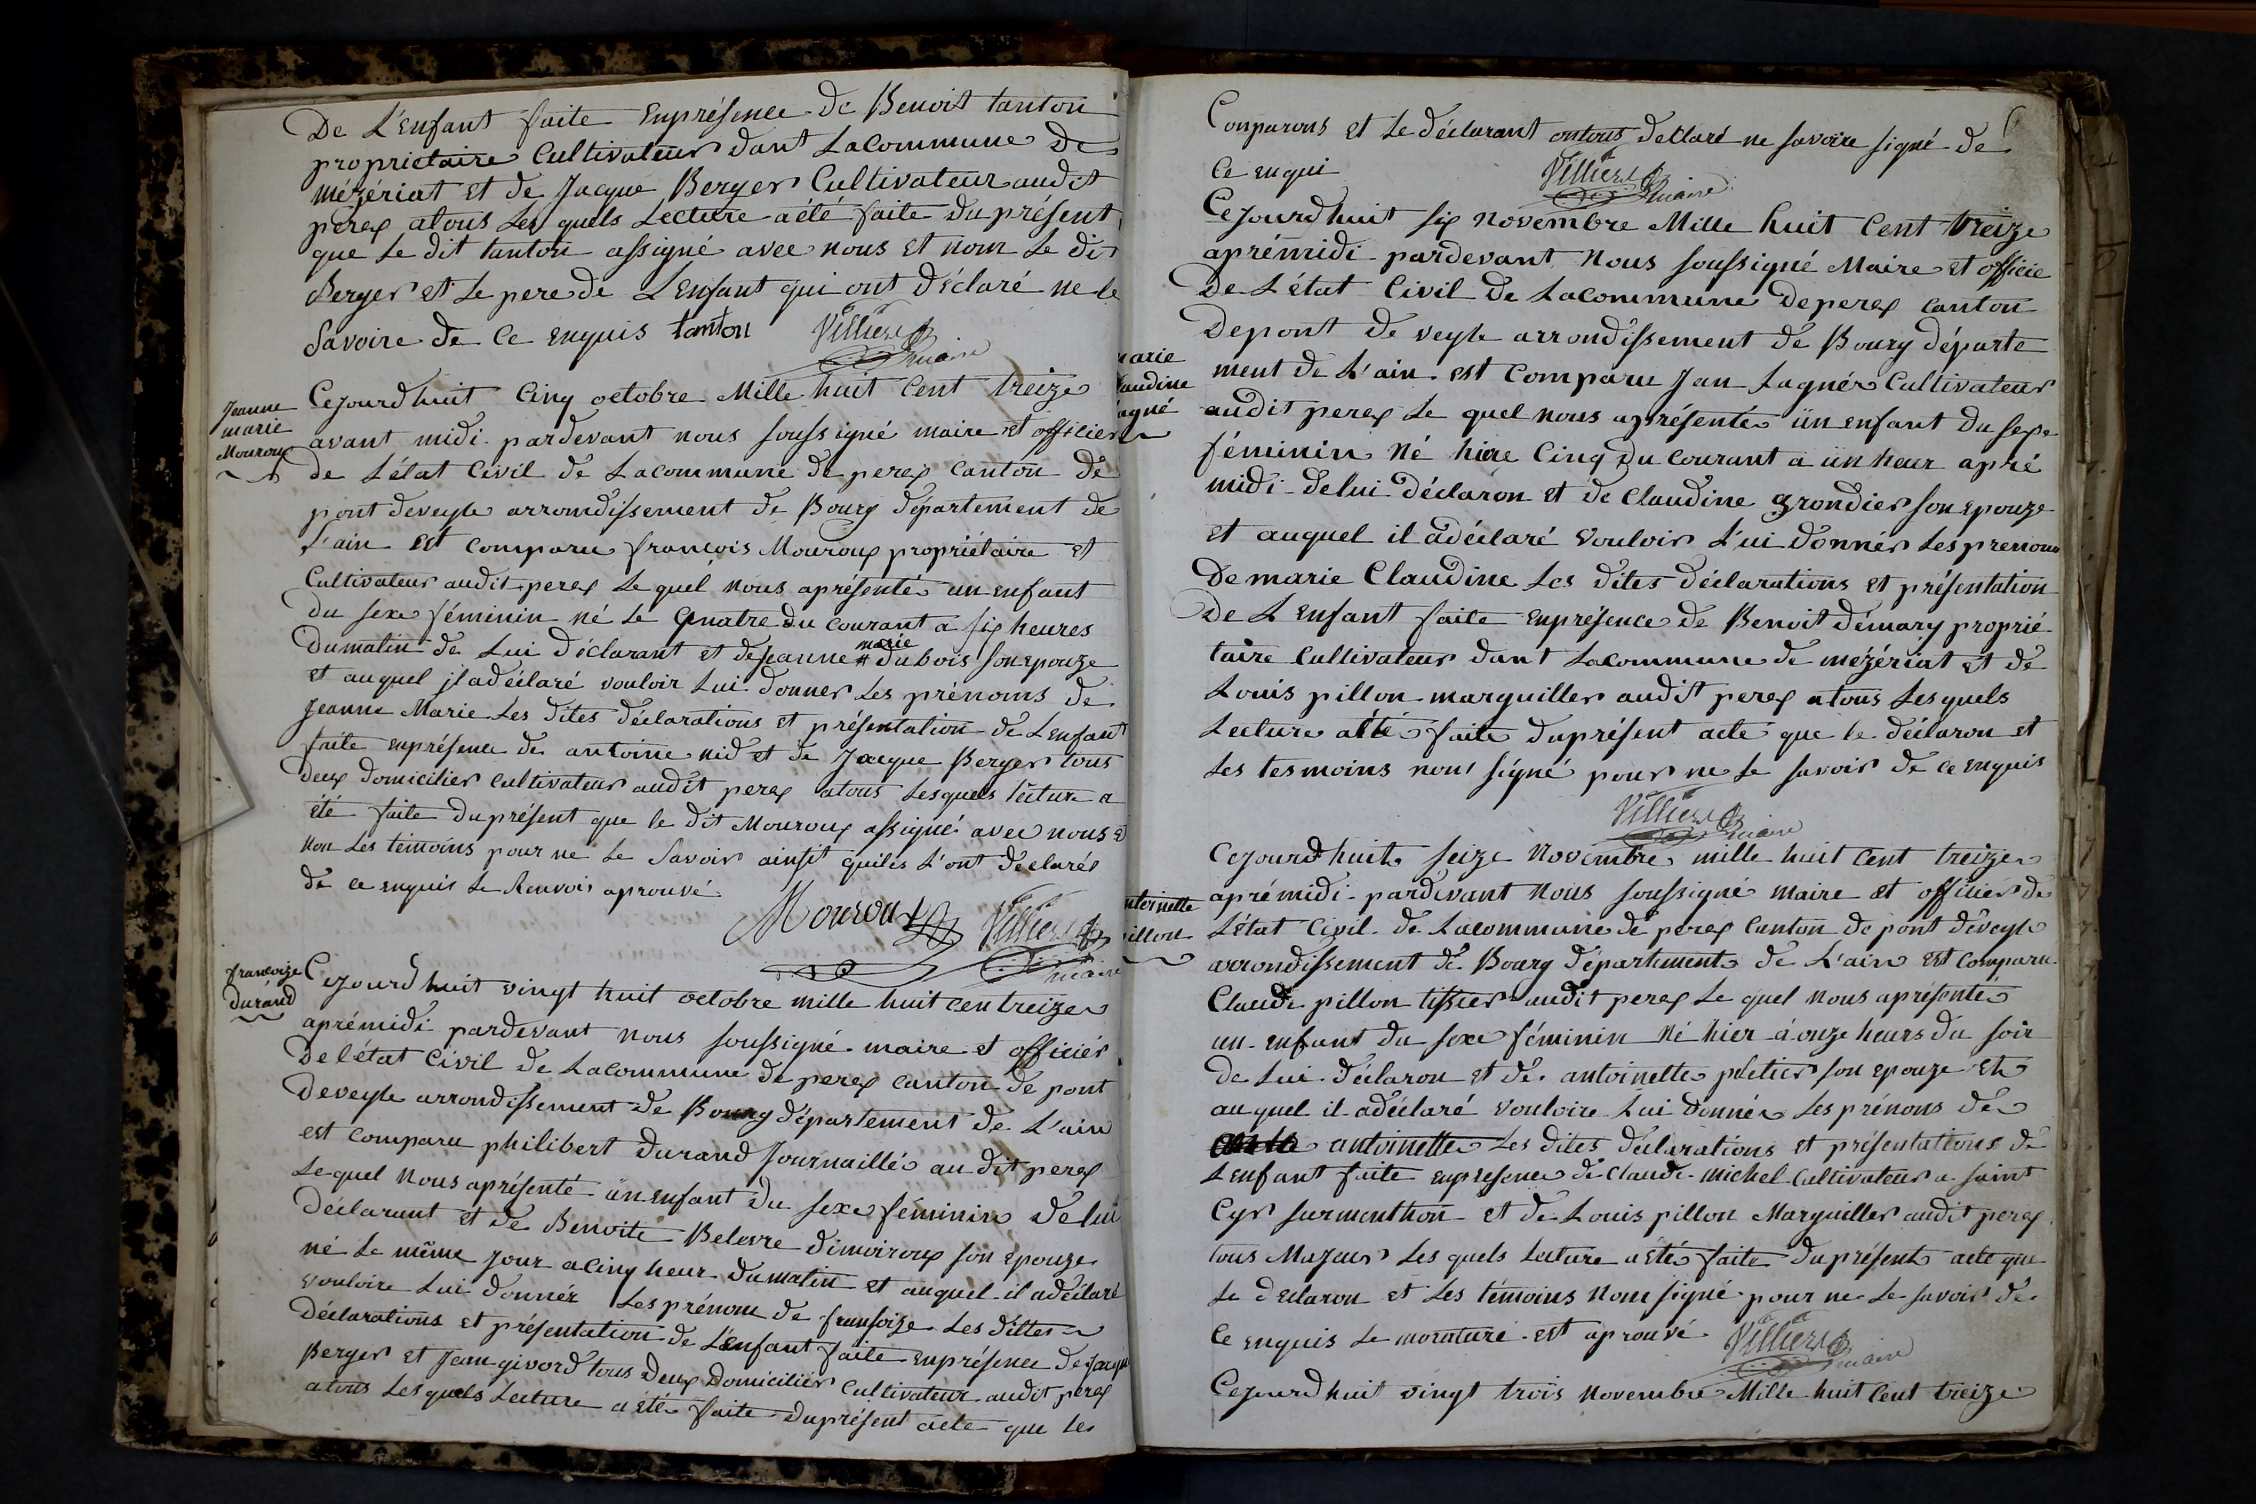 De L'Enfant faite Enprésence de Benoit tanton
proprietaire Cultivateur dant Lacommune De
mézériat et de Jacque Berger Cultivateur audit
perex atous Les quels Lecture aété faite du présent
que Le dit tanton assigné avec nous et nom Le di
Berger et Le pere de L'enfant qui ont déclaré ne le
Savoire de Ce enquis tanton Villier
maire
Jeanne
marie
Mouroux
Cejourd'huit Cinq octobre Mille huit Cent treize
avant midi pardevant nous soussigné maire et officier
de L'état Civil de Lacommune de perex Canton de
pont deveyle arrondissement de Bourg département de
L'ain est comparu françois Mouroux propriétaire et
Cultivateur audit perex Le quel nous aprésenté un enfant
du sexe féminin né Le quatre du courant a six heures
Dumatin de Lui déclarant et de Jeanne # marie dubois son epouze
et auquel jl adéclaré vouloir Lui donner Les prénoms de
Jeanne Marie Les dites déclarations et présentation de L'enfant
faite enprésence de antoine nid et de Jacque Berger tous
deux domicilier cultivateur audit perex atous Lesquels lecture a
été faite duprésent que le dit Mouroux assigné avec nous et
non Les temoins pour ne Le Savoir ainsit quiles L'ont déclarés
de ce enquis Le Renvois aprouvé
Mouroux Villier
maire
francoize
durand
Cejourd'huit vingt huit octobre mille huit cen treize
aprémidi pardevant nous soussigné maire et officier
De l'état Civil de Lacommune de perex canton de pont
Deveyle arrondissement de Bourg département de L'ain
est comparu philibert durand Journaillé au dit perex
Lequel nous aprésenté un enfant du sexe féminin de lui
Déclarant et de Benoite Belevre dimoiroux son epouze
né Le même jour a cinq heur dumatin et auquel il adéclaré
vouloire Lui donnér Les prénom de fransoize Les dittes
Déclarations et présentation de L'enfant faite enprésence de Jacque
Berger et Jean givord tous deux domicilier cultivateur audit perex
atous Lesquels Lecture a été faite duprésent acte que les
Conparons et Le déclarant ontous declaré ne savoire signé de
Ce enqui
Villier
maire
marie
Claudine
Lagné
Cejourdhuit six novembre Mille huit Cent treize
aprémidi pardevant nous soussigné Maire et officie
De L'état Civil de Lacommune de perex canton
Depont de veyle arrondissement de Bourg départe
ment de L'ain est Comparu Jan Lagnér Cultivateur
audit perex Le quel nous aprésenté ün enfant du sexe
féminin né hiere Cinq du Courant a ün heur apré
midi de lui déclaron et de Claudine grondier son epouze
et auquel il adéclaré vouloir L'ui donnér Les prenom
De marie Claudine Les dites déclarations et présentation
De L'enfant faite enprésence de Benoit démary proprié
taire cultivateur dant Lacommune de mézériat et de
Louis pillon marguiller audit perex atous Lesquels
Lecture a été faite duprésent acte que le déclaron et
Les tesmoins non signé pour ne Le savoir de ce enquis
Villier
maire
antoinette
pillon
Cejourdhuit seize Novembre mille huit Cent treize
aprémidi pardevant nous soussigné maire et officier de
L'état Civil de Lacommune de perex Canton de pont deveyle
arrondissement de Bourg département de L'ain est Comparu
Claude pillon tissier audit perex Le quel nous aprésenté
un enfant du sexe féminin né hier à onze heurs du soir
de Lui déclaron et de antoinette peletier son epouze et
auquel il adéclaré vouloire Lui donnér Les prénons de
antoinette Les dites déclarations et présentations de
L'enfant faite enpresence de Claude michel cultivateur a saint
Cyr surmenthon et de Louis pillon Marguiller audit perex
tous Majeur Les quels Lecture a été faite duprésent acte que
Le declaron et Les témoins nom signé pour ne Le savoir de
Ce enquis Le moraturé est aprouvé Villier
maire
Cejourdhuit vingt trois novembre Mille huit Cent treize